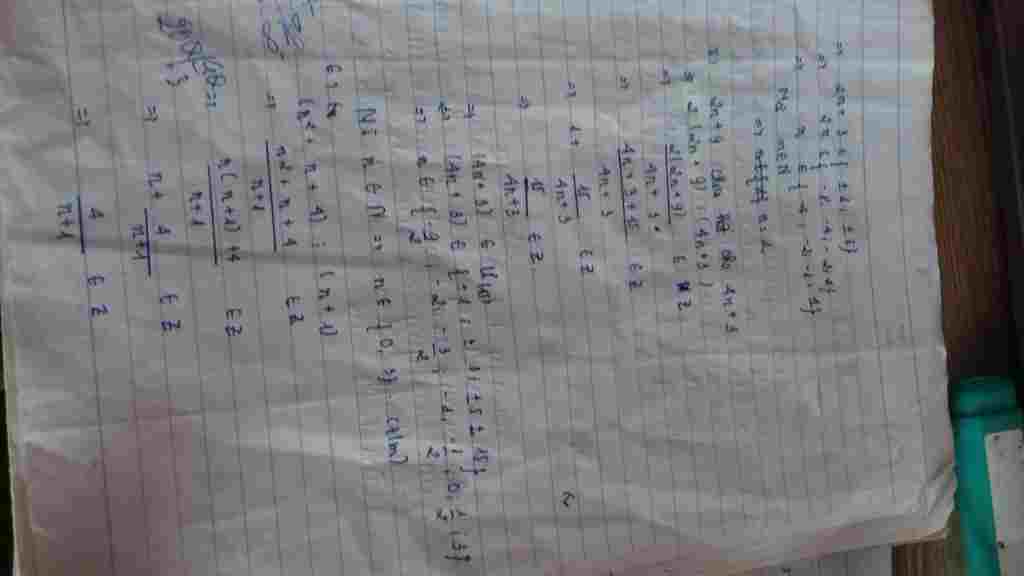 => 2n + 3 ∈ { ± 1, ± 5}
=> 2n ∈ { -8, -4, -2, 2}
=> n ∈ { -4, -2, -1, 1}
Mà n ∈ N
=> n = 1
2n + 9 chia cho 4n + 3
=> 2 (2n + 9) ⋮ (4n + 3)
=> 2(2n+9) / 4n + 3 ∈ Z
=> 4n + 3 + 15 / 4n + 3 ∈ Z
=> 1 + 15 / 4n + 3 ∈ Z
=> 15 / 4n + 3 ∈ Z
=> (4n + 3) ∈ Ư(15)
=> (4n + 3) ∈ { ± 1, ± 3, ± 5, ± 15}
=> n ∈ { -9/2, -2, -3/2, -1, -1/2, 0, 1/2, 3}
Mà n ∈ N => n ∈ {0, 3} (t/m)
(n² + n + 4) ⋮ (n + 1)
=> n² + n + 4 / n+1 ∈ Z
n(n+1) + 4 / n+1 ∈ Z
=> n + 4 / n+1 ∈ Z
=> 4 / n+1 ∈ Z